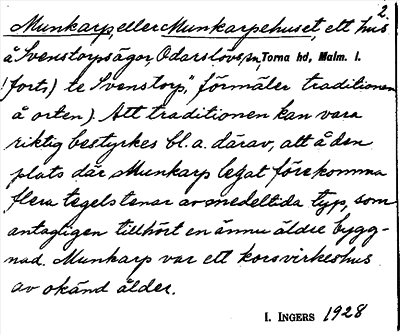 2.
Munkarp eller Munkarpehuset, ett hus
å Svenstorps ägor, Odarslövs sn, Torna hd, Malm. l.
(forts.) te Svenstorp", förmäler traditionen
å orten). Att traditionen kan vara
riktig bestyrkes bl. a. därav, att å den
plats där Munkarp legat förekomma
flera tegelstenar av medeltida typ, som
antagligen tillhört en ännu äldre bygg-
nad. Munkarp var ett korsvirkeshus
av okänd ålder.
I. INGERS 1928